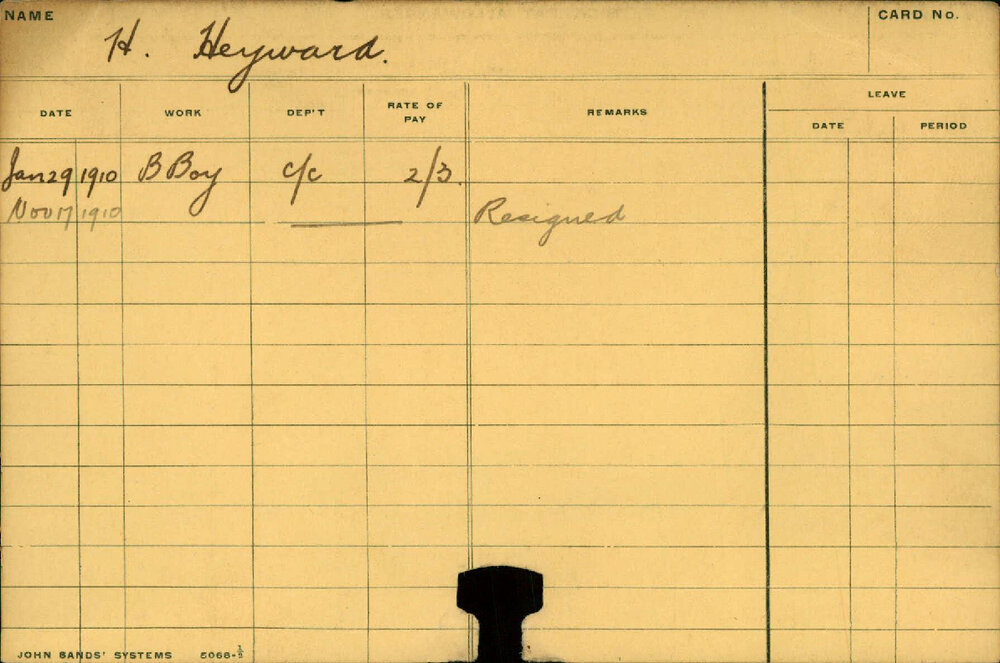 NAME H. Heyward. CARD No.
LEAVE
DATE WORK DEP'T RATE OF PAY REMARKS DATE PERIOD
Jan 29 1910 B Boy c/c 2/3
Nov 17 1910 Resigned
JOHN SANDS' SYSTEMS 5068-½